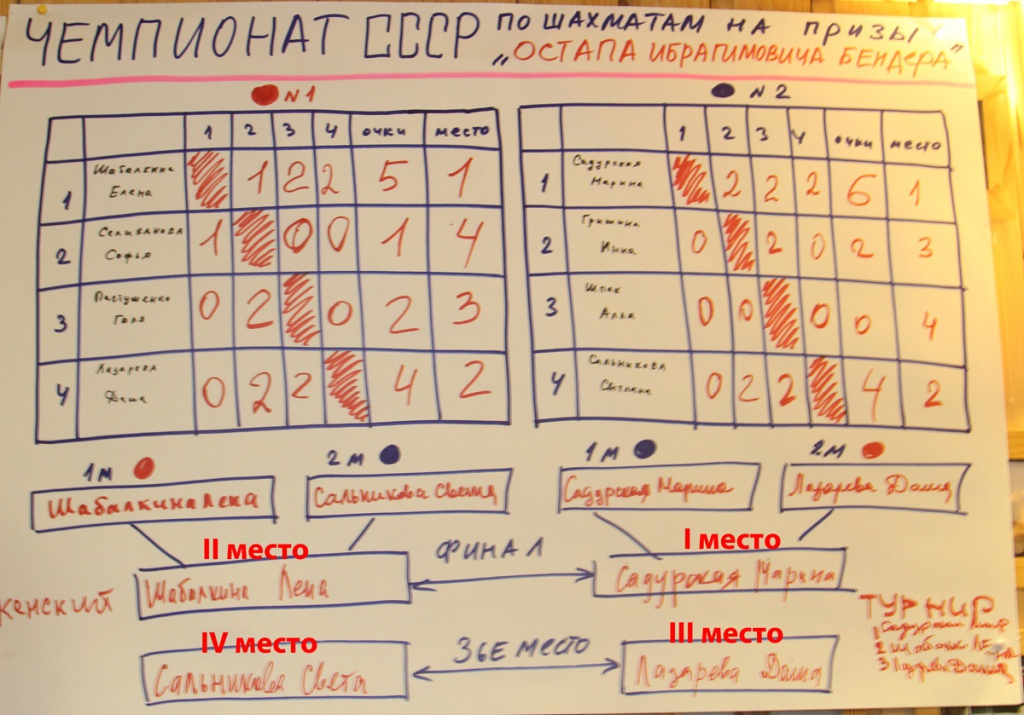 ЧЕМПИОНАТ СССР ПО ШАХМАТАМ НА ПРИЗЫ
„ОСТАПА ИБРАГИМОВИЧА БЕНДЕРА"
N1
1 2 3 4 ОЧКИ МЕСТО
1 Шабалкина Елена 1 2 2 5 1
2 Селиванова Софья 1 0 0 1 4
3 Пастушенко Галя 0 2 0 2 3
4 Лазарева Даша 0 2 2 4 2
N2
1 2 3 4 ОЧКИ МЕСТО
1 Садурская Марина 2 2 2 6 1
2 Гришина Инна 0 2 0 2 3
3 Шпак Алла 0 0 0 0 4
4 Сальникова Светлана 0 2 2 4 2
1М 2М 1М 2М
Шабалкина Лена Сальникова Садурская Марина Лазарева Даша
II место ФИНАЛ I место
Шабалкина Лена Садурская Марина
женский ТУРНИР
1 Садурская
2
3 Лазарева Даша
IV место 3ЬЕ МЕСТО III место
Сальникова Света Лазарева Даша